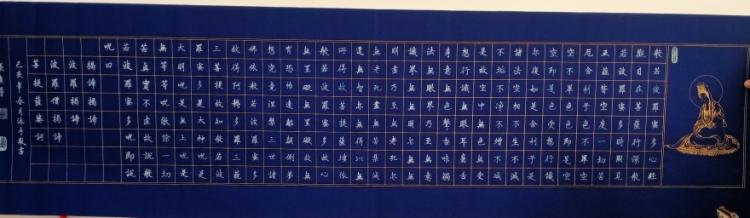 般若波羅蜜多心經
觀自在菩薩行深般
若波羅蜜多時照見
五蘊皆空度一切苦
厄舍利子色不異空
空不異色色即是空
空即是色受想行識
亦復如是舍利子是
諸法空相不生不滅
不垢不淨不增不減
是故空中無色無受
想行識無眼耳鼻舌
身意無色聲香味觸
法無眼界乃至無意
識界無無明亦無無
明盡乃至無老死亦
無老死盡無苦集滅
道無智亦無得以無
所得故菩提薩埵依
般若波羅蜜多故心
無罣礙無罣礙故無
有恐怖遠離顛倒夢
想究竟涅槃三世諸
佛依般若波羅蜜多
故得阿耨多羅三藐
三菩提故知般若波
羅蜜多是大神呪是
大明呪是無上呪是
無等等呪能除一切
苦真實不虛故說般
若波羅蜜多呪即說
呪曰
揭諦揭諦
波羅揭諦
波羅僧揭諦
菩提薩婆訶
己亥年
敬書